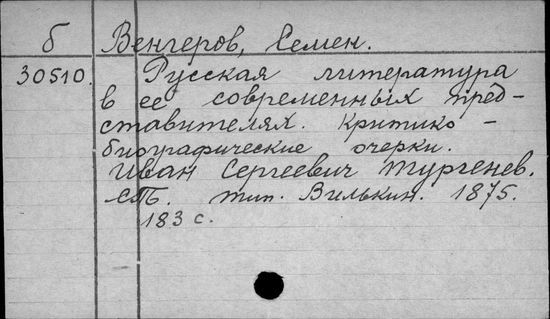 б Венгеров, Семен.
30510. Русская литература
в ее современных пред-
ставителях. Критико-
биографические очерки.
Иван Сергеевич Тургенев.
СПб. тип. Вилькин. 1875.
183 с.